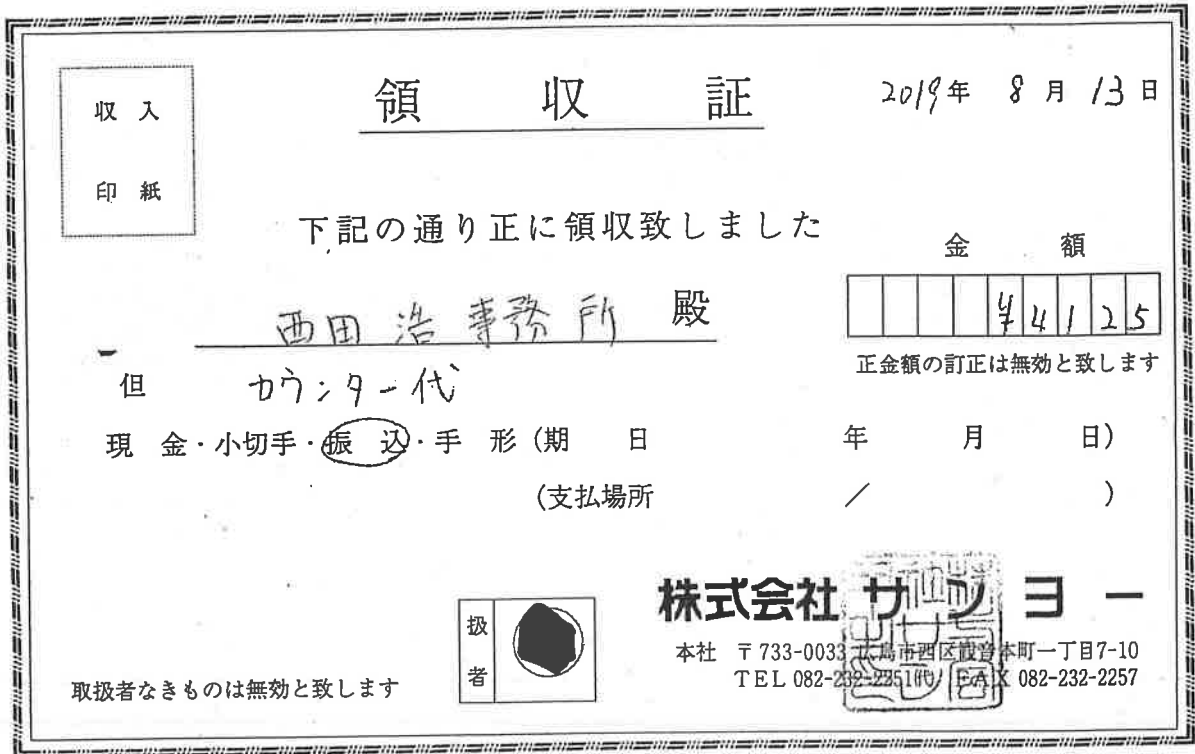 収入
印紙
領収証
2019年 8月13日
下記の通り正に領収致しました
金額
西田浩事務所 殿
¥4125
正金額の訂正は無効と致します
但 カウンター代
現金・小切手・振込・手形(期日 年 月 日)
(支払場所 / )
扱者
株式会社サンヨー
本社 〒733-0033 広島市西区観音本町一丁目7-10
TEL 082-232-2251㈹ FAX 082-232-2257
取扱者なきものは無効と致します